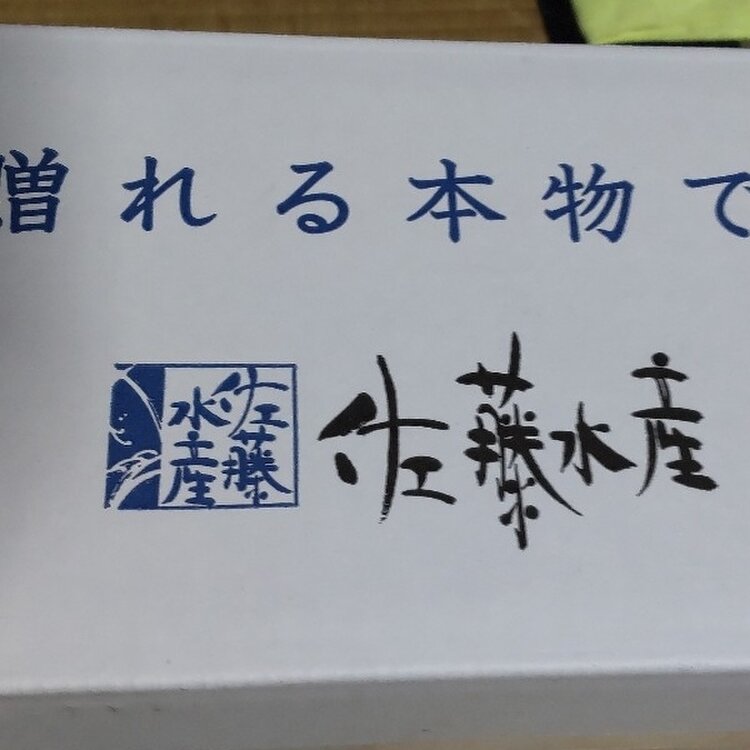 贈れる本物で
佐藤
水産
佐藤水産